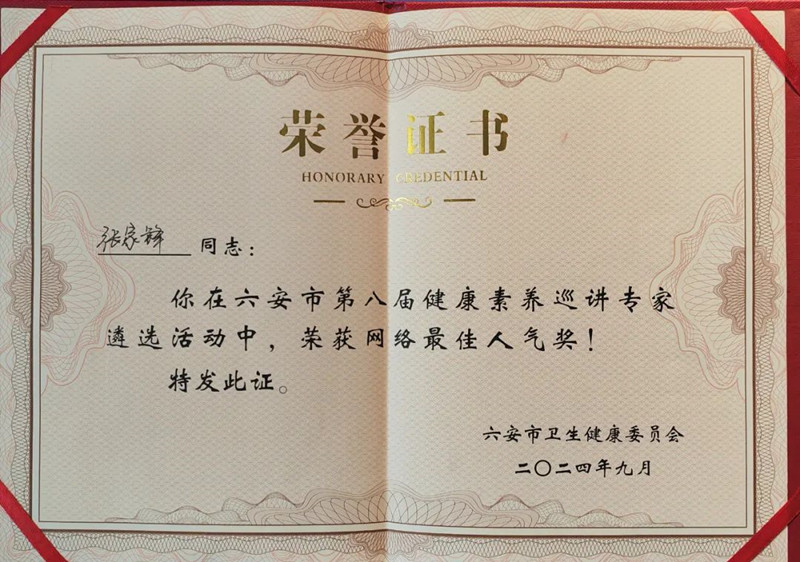 荣誉证书
HONORARY CREDENTIAL
张家锋 同志：
你在六安市第八届健康素养巡讲专家
遴选活动中，荣获网络最佳人气奖！
特发此证。
六安市卫生健康委员会
二〇二四年九月